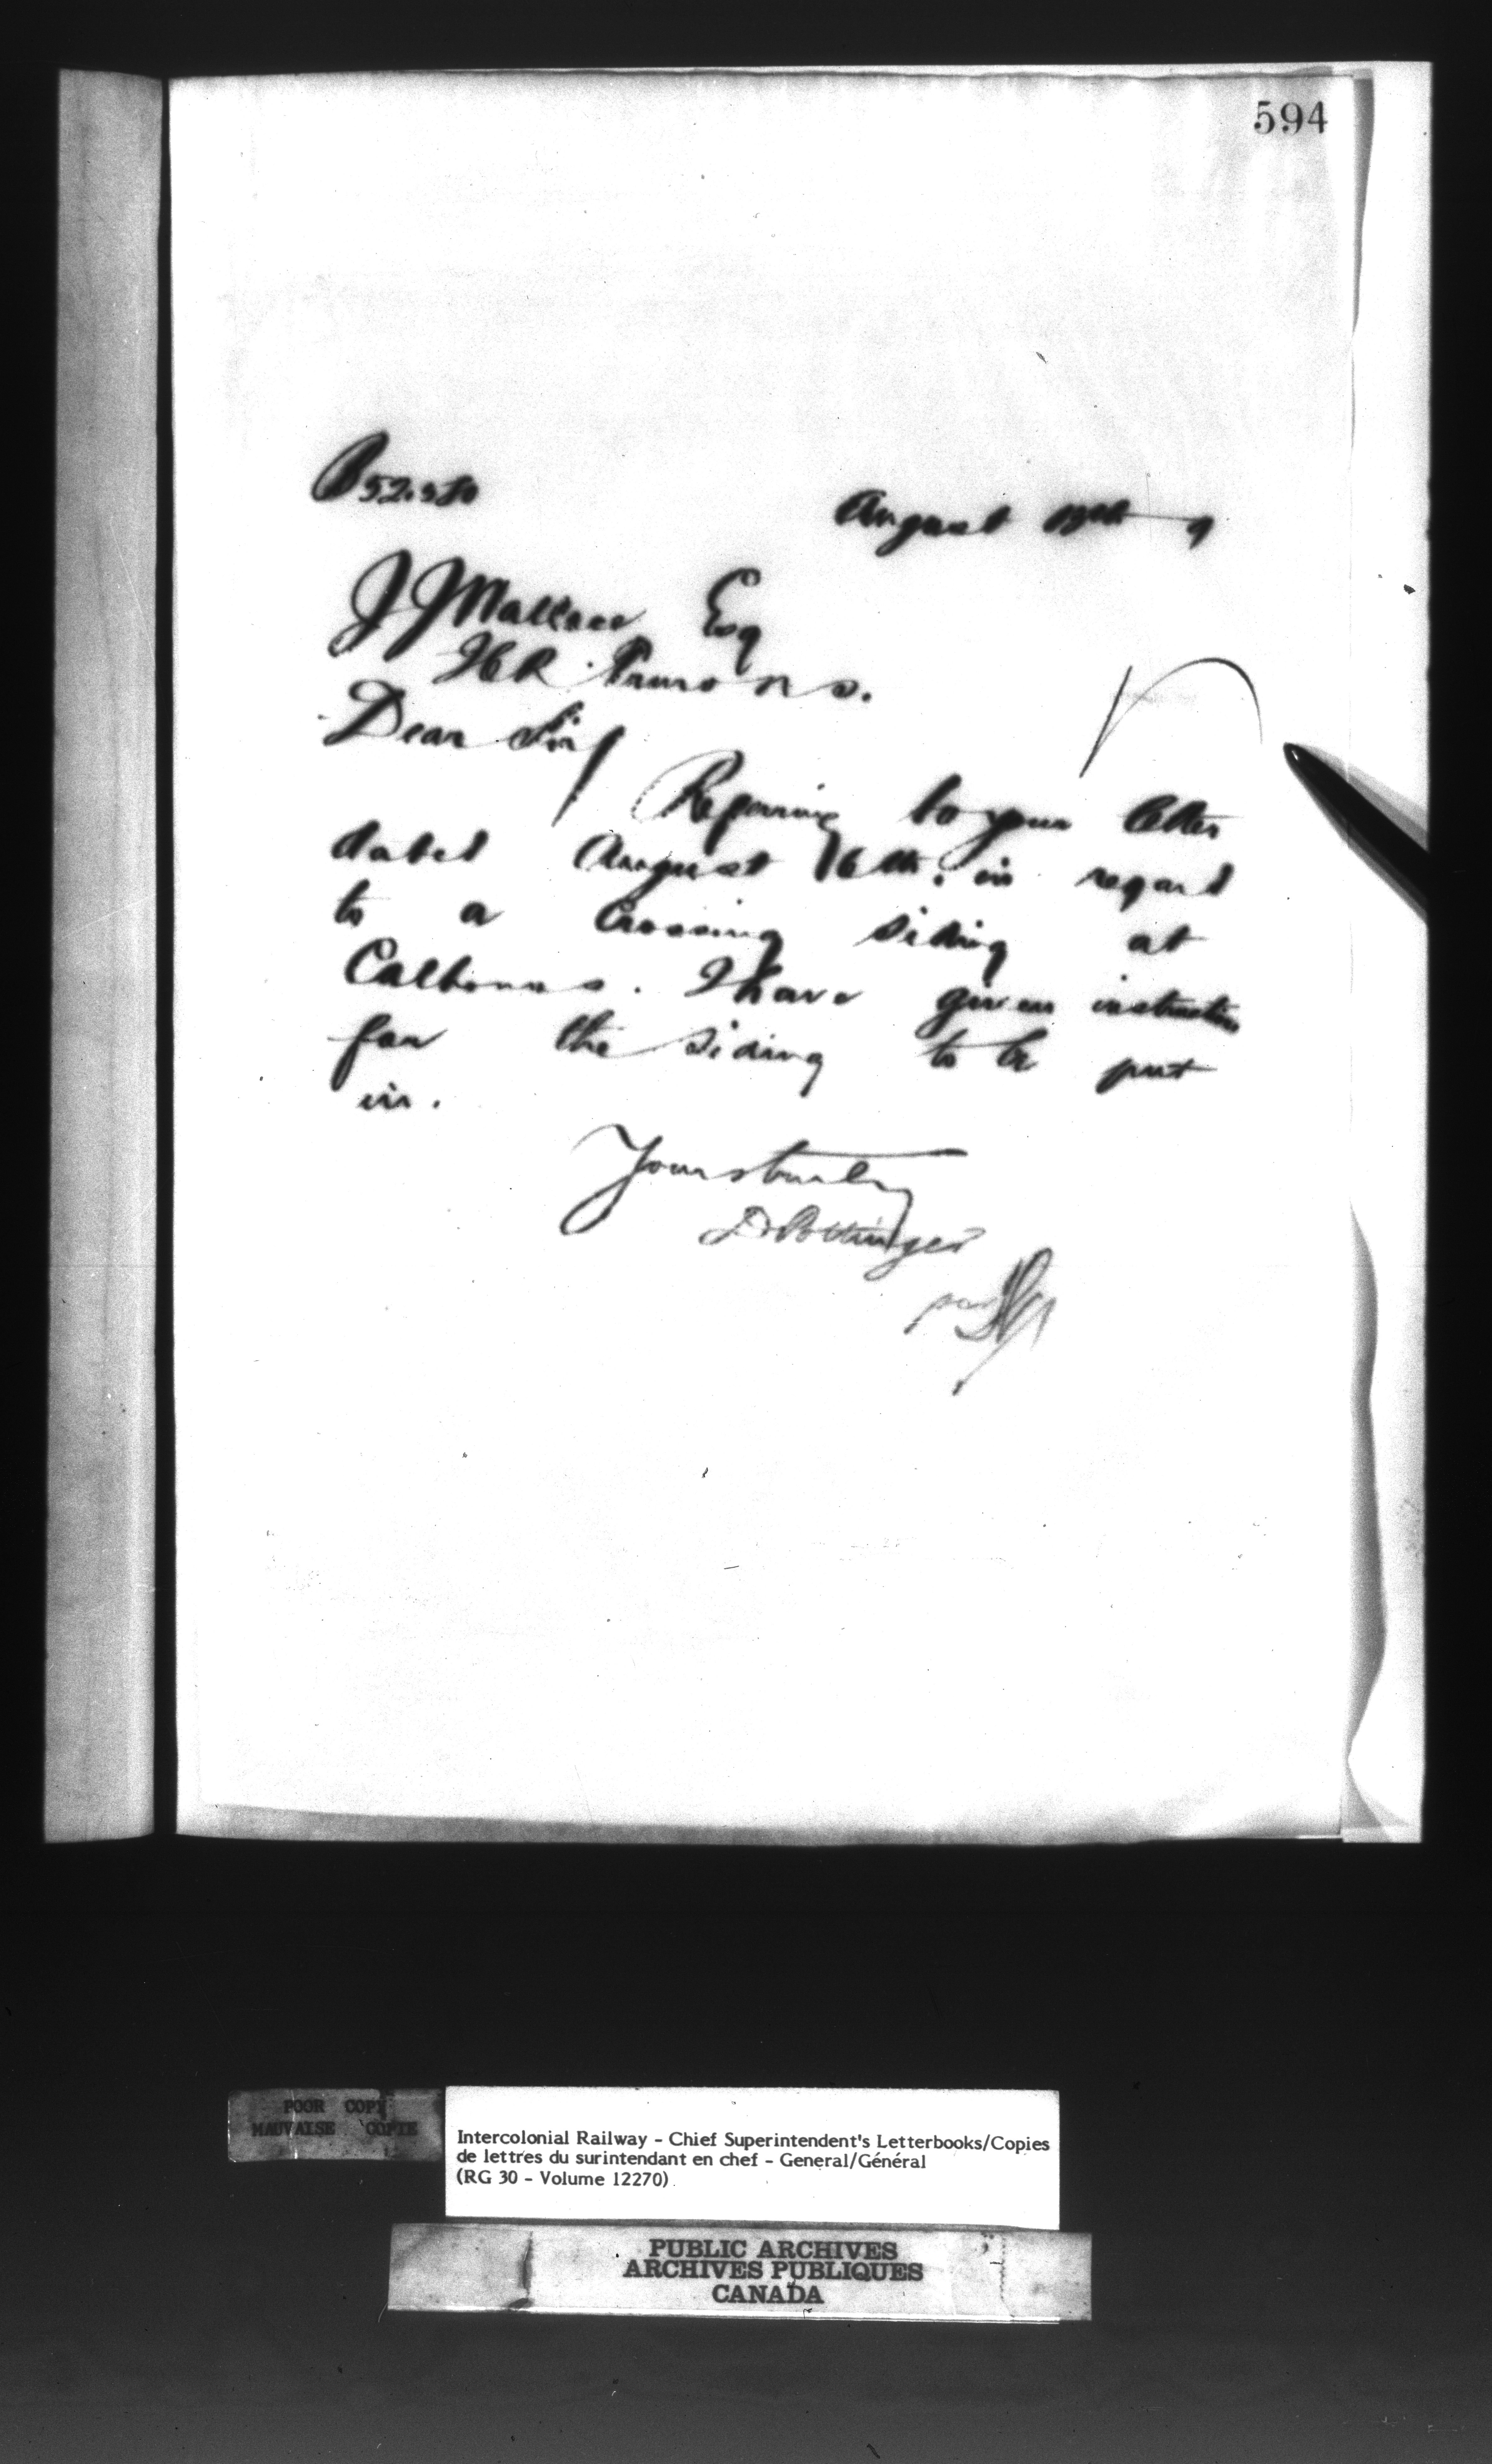 594
August 19th 9
J J Wallace Esq
ICR
Dear Sir/
Referring to your letter
dated August 16th. in regard
to a Crossing siding at
Calhouns. I have given instructions
for the siding to be put
in.
Yours truly
D Pottinger
per
POOR COPY
MAUVAISE COPIE
Intercolonial Railway - Chief Superintendent's Letterbooks/Copies
de lettres du surintendant en chef - General/Général
(RG 30 - Volume 12270)
PUBLIC ARCHIVES
ARCHIVES PUBLIQUES
CANADA